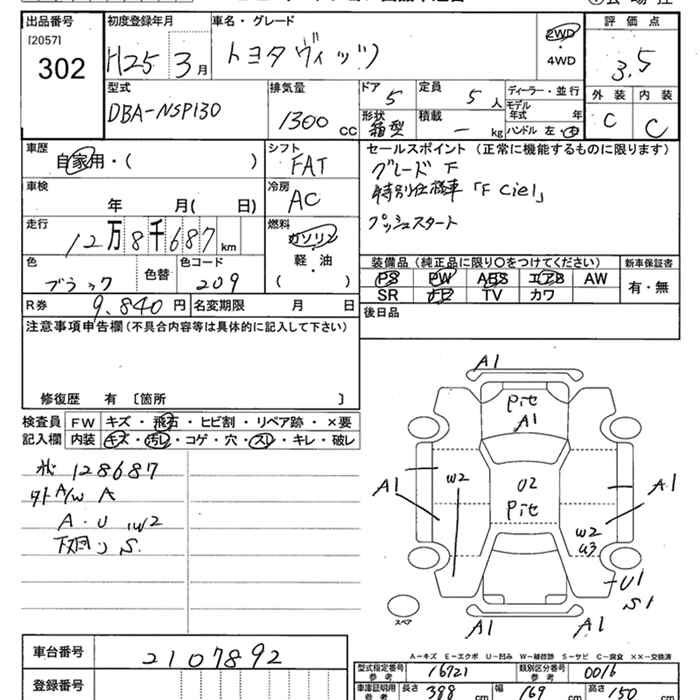 出品番号 初度登録年月 車名・グレード 評価点
[2057]
302 H25 3月 トヨタヴィッツ 2WD・4WD 3.5
型式 排気量 ドア 定員 ディーラー・並行 外装 内装
DBA-NSP130 1300 CC 5 5人 モデル年式 年 C C
形状 積載 ハンドル 左・右
箱型 — kg
車歴 シフト セールスポイント(正常に機能するものに限ります)
自家用・( ) FAT グレード F
車検 冷房 特別仕様車「F Ciel」
年 月( 日) AC プッシュスタート
走行 燃料
12万8千687km ガソリン
軽・油
( )
色 色替 色コード 装備品(純正品に限り○をつけてください) 新車保証書
ブラック 209 PS PW ABS エアB AW 有・無
SR ナビ TV カワ
R券 9,840円 名変期限 月 日 後日品
注意事項申告欄(不具合内容等は具体的に記入して下さい)
修復歴 有 〔箇所 〕
検査員 FW キズ・飛石・ヒビ割・リペア跡・×要
記入欄 内装 キズ・汚レ・コゲ・穴・スレ・キレ・破レ
128687
外A/W A
A・U,W2
下廻り S.
A1
Pit
A1
A1 W2 U2 A1
Pit
W2
U3
U1
S1
A1 A1
スペア
A-キズ E-エクボ U-凹み W-補修跡 S-サビ C-腐食 ××-交換済
車台番号 2107892
登録番号
型式指定番号 参考 16721 類別区分番号 参考 0016
車庫証明用 参考 長さ 388 cm 幅 169 cm 高さ 150 cm